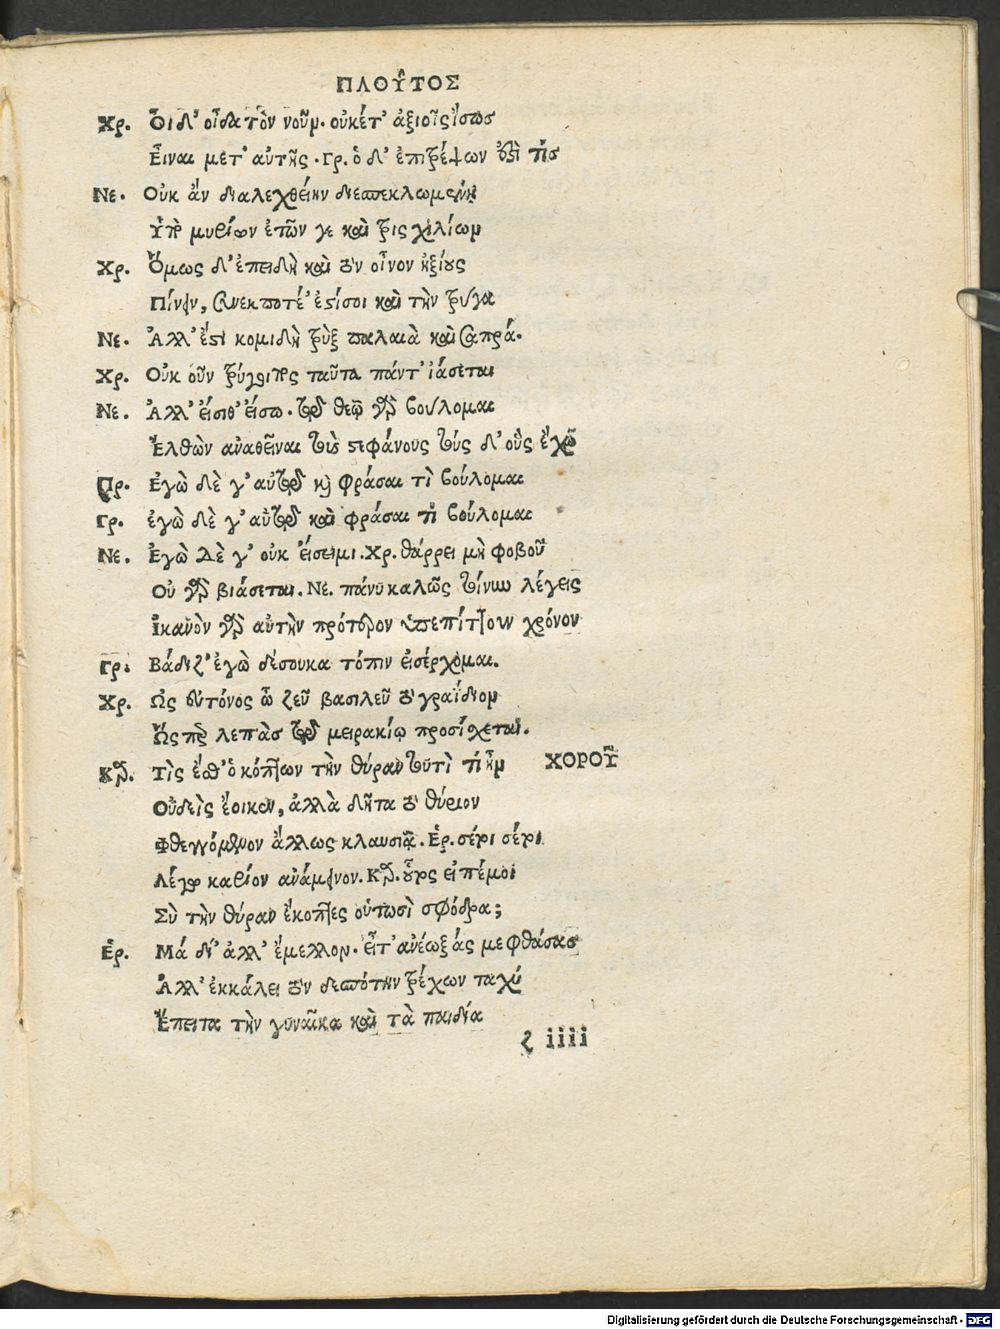 ΠΛΟΥ͂ΤΟΣ
Χρ. Ὃ δ' οἶδα τὸν νοῦν. οὐκέτ' ἀξιοῖς ἴσως
Εἶναι μετ' αὐτῆς. Γρ. ὁ δ' ἐπιτρέψων ἐστὶ τίς
Νε. Οὐκ ἄν διαλεχθείην διεσπεκλωμένῃ
Ὑπὸ μυρίων ἐτῶν γε καὶ τρισχιλίων
Χρ. Ὅμως δ' ἐπειδὴ καὶ τὸν οἶνον ἠξίους
Πίνειν, συνεκποτέ' ἐστί σοι καὶ τὴν τρύγα
Νε. Ἀλλ' ἔστι κομιδῆ τρὺξ παλαιὰ καὶ σαπρά.
Χρ. Οὐκ οὖν τρύγοιπος ταῦτα πάντ' ἰάσεται
Νε. Ἀλλ' εἴσιθ' εἴσω. τῷ θεῷ γὰρ βούλομαι
Ἐλθὼν ἀναθεῖναι τοὺς στεφάνους τούς δ' οὓς ἔχω
Γρ. Ἐγὼ δὲ γ' αὐτῷ καὶ φράσαι τὶ βούλομαι
Γρ. ἐγὼ δὲ γ' αὐτῷ καὶ φράσαι τὶ βούλομαι
Νε. Ἐγὼ Δὲ γ' οὐκ εἴσειμι. Χρ. θάρρει μὴ φοβοῦ
Οὐ γὰρ βιάσεται. Νε. πάνυ καλῶς τοίνυν λέγεις
Ἱκανὸν γὰρ αὐτὴν πρότερον ὑπεπίττουν χρόνον
Γρ. Βάδιζ' ἐγὼ δέ σου κατόπιν εἰσέρχομαι.
Χρ. Ὡς εὐτόνος ὦ ζεῦ βασιλεῦ τὸ γραΐδιον
Ὥσπερ λεπὰς τῷ μειρακίῳ προσίσχεται.
ΧΟΡΟΥ͂
Κα. Τὶς ἔσθ' ὁ κόπτων τὴν θύραν τουτὶ τί ἦν
Οὐδεὶς ἔοικεν, ἀλλὰ δῆτα τὸ θύριον
Φθεγγόμενον ἄλλως κλαυσιᾷ. Ἑρ. σέ τι σέ τι
Λέγω καρίον ἀνάμεινον. Κα. οὗτος εἰπέ μοι
Σὺ τὴν θύραν ἔκοπτες οὑτωσὶ σφόδρα;
Ἑρ. Μά δί' ἀλλ' ἔμελλον. εἶτ' ἀνέωξάς με φθάσας
Ἀλλ' ἐκκάλει τὸν δεσπότην τρέχων ταχύ
Ἔπειτα τὴν γυναῖκα καὶ τὰ παιδία
ζ iiii
Digitalisierung gefördert durch die Deutsche Forschungsgemeinschaft - DFG